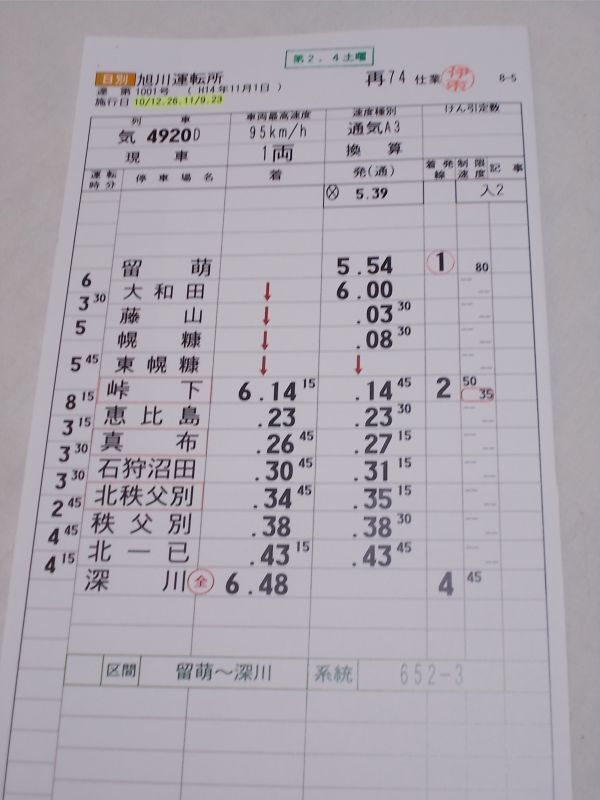 第2．4土曜
日別 旭川運転所 再74 仕業 8-5
達 第1001号 ( H14年11月1日 )
施行日 10/12.26.11/9.23
列車 車両最高速度 速度種別 けん引定数
気 4920D 95km/h 通気A3
現車 1両 換算
運転時分 停車場名 着 発(通) 着発線 制限速度 記事
5.39 入2
留萌 5.54 1 80
6 大和田 ↓ 6.00
3 30 藤山 ↓ .03 30
5 幌糠 ↓ .08 30
東幌糠 ↓ ↓
5 45 峠下 6.14 15 .14 45 2 50 35
8 15 恵比島 .23 .23 30
3 15 真布 .26 45 .27 15
3 30 石狩沼田 .30 45 .31 15
3 30 北秩父別 .34 45 .35 15
2 45 秩父別 .38 .38 30
4 45 北一已 .43 15 .43 45
4 15 深川 全 6.48 4 45
区間 留萌～深川 系統 652-3